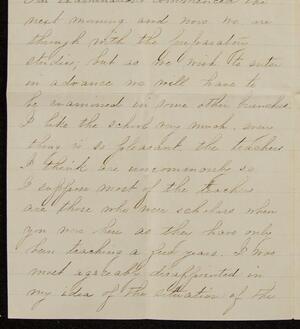 Our examinations commenced the
next morning and now we are
through with the preparatory
studies, but as we wish to enter
in advance we will have to
be examined in some other branches.
I like the school very much, every
thing is so pleasant, the teachers
I think are uncommonly so
I suppose most of the teachers
are those who were scholars when
you were here as they have only
been teaching a few years. I was
most agreeably disappointed in
my idea of the situation of the